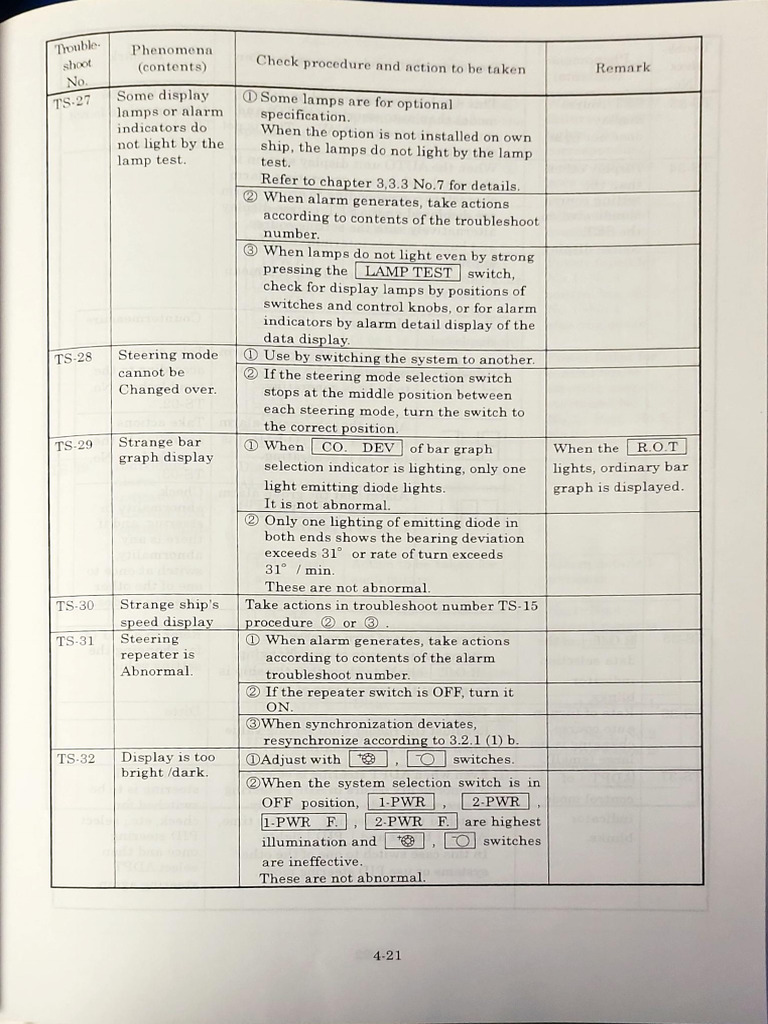 Trouble-
shoot
No.
Phenomena
(contents)
Check procedure and action to be taken
Remark
TS-27
Some display
lamps or alarm
indicators do
not light by the
lamp test.
① Some lamps are for optional
specification.
When the option is not installed on own
ship, the lamps do not light by the lamp
test.
Refer to chapter 3,3.3 No.7 for details.
② When alarm generates, take actions
according to contents of the troubleshoot
number.
③ When lamps do not light even by strong
pressing the LAMP TEST switch,
check for display lamps by positions of
switches and control knobs, or for alarm
indicators by alarm detail display of the
data display.
TS-28
Steering mode
cannot be
Changed over.
① Use by switching the system to another.
② If the steering mode selection switch
stops at the middle position between
each steering mode, turn the switch to
the correct position.
TS-29
Strange bar
graph display
① When CO. DEV of bar graph
selection indicator is lighting, only one
light emitting diode lights.
It is not abnormal.
When the R.O.T
lights, ordinary bar
graph is displayed.
② Only one lighting of emitting diode in
both ends shows the bearing deviation
exceeds 31° or rate of turn exceeds
31° / min.
These are not abnormal.
TS-30
Strange ship's
speed display
Take actions in troubleshoot number TS-15
procedure ② or ③ .
TS-31
Steering
repeater is
Abnormal.
① When alarm generates, take actions
according to contents of the alarm
troubleshoot number.
② If the repeater switch is OFF, turn it
ON.
③When synchronization deviates,
resynchronize according to 3.2.1 (1) b.
TS-32
Display is too
bright /dark.
①Adjust with , switches.
②When the system selection switch is in
OFF position, 1-PWR , 2-PWR ,
1-PWR F. , 2-PWR F. are highest
illumination and , switches
are ineffective.
These are not abnormal.
4-21